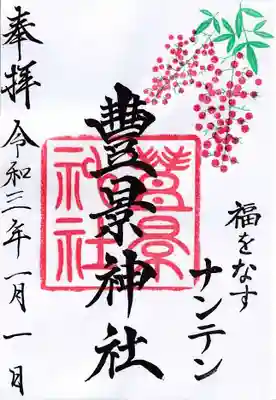 福をなす
ナンテン
豊景神社
豊景神社
奉拝
令和三年一月一日